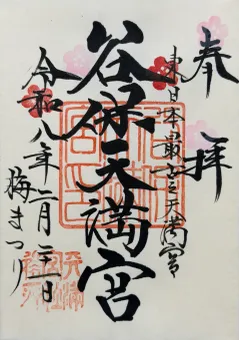 奉拝
東日本最古之天満宮
谷保天満宮
令和八年二月二十一日
梅まつり